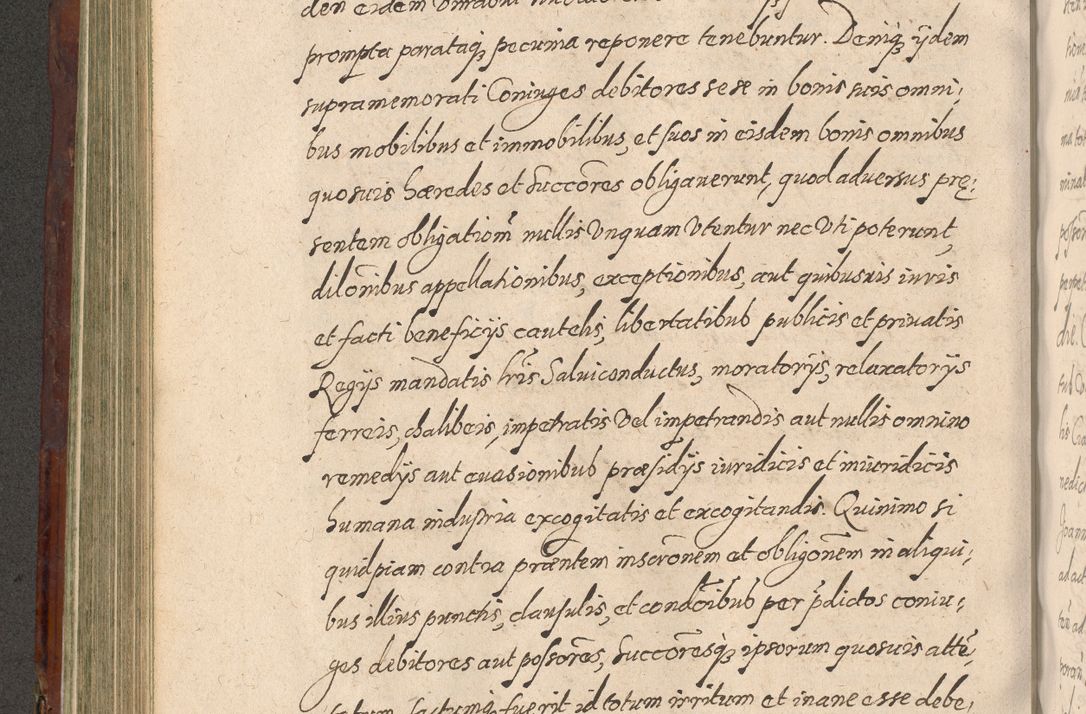 den eidem
prompta parataq₃ pecunia reponere tenebuntur. Deniq₃ ijdem
supramemorati Coniuges debitores sese in bonis suis omni:
bus mobilibus et immobilibus, et suos in eisdem bonis omnibus
quosuis hæredes et succōres obligauerunt, quod aduersus prę:
sentem obligatiom̄ nullis vnquam vtentur nec vti poterunt,
dilōnibus appellationibus, exceptionibus, aut quibusuis iuris
et facti beneficijs cautelis, libertatibus publicis et priuatis
Regijs mandatis lr̄is Saluiconductus, moratorijs, relaxatorijs
ferreis, chalibeis, impetratis vel impetrandis aut nullis omnino
remedijs aut euasionibus præsidijs iuridicis et iniuridicis
humana industria excogitatis et excogitandis. Quinimo si
quidpiam contra præntem inscrōnem et obligōnēm in aliqui:
bus illius punctis, clausulis, et condōibus per p̄dictos coniu:
ges debitores aut possōres, succōresq₃ ipsorum quosuis attē:
fuerit id totum irritum et inane esse debe: